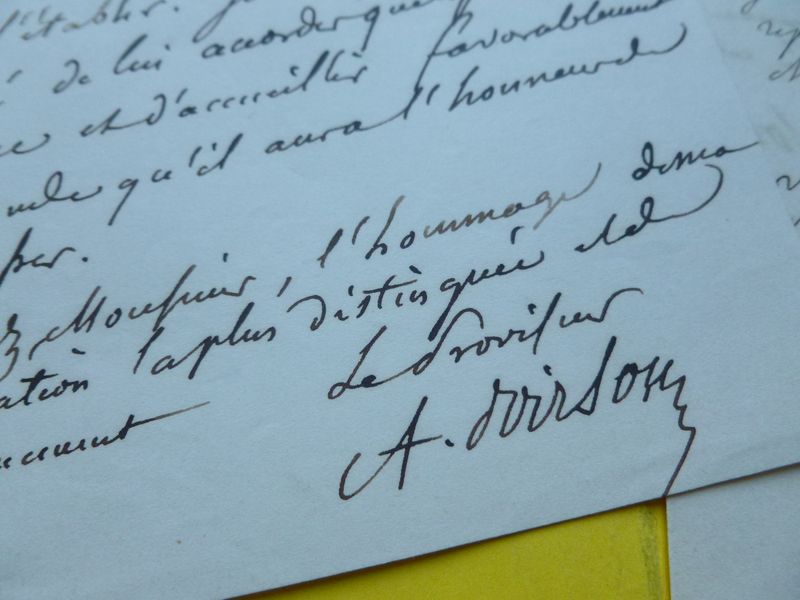 l'établir.
de lui accorder
et d'accueillir favorablement
qu'il aura l'honneur de
Monsieur, l'hommage de ma
la plus distinguée et de
Le Proviseur
A. Poirson